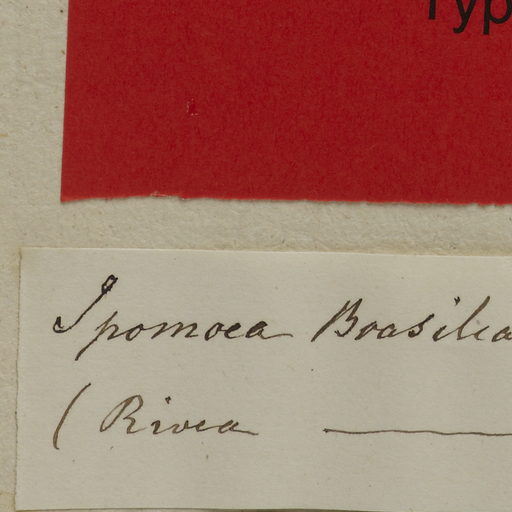 Typ
Ipomoea Brasilia
( Rivea ———